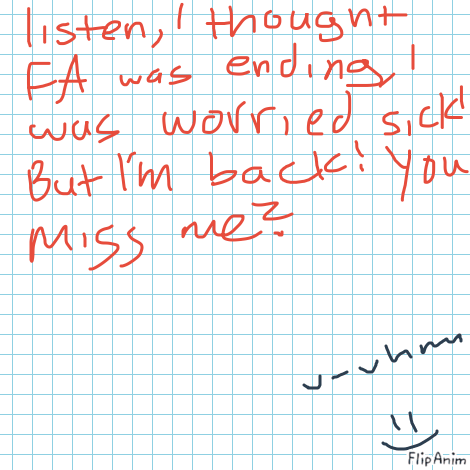 listen, I thought
FA was ending, I
was worried sick!
But I'm back! you
miss me?
FlipAnim